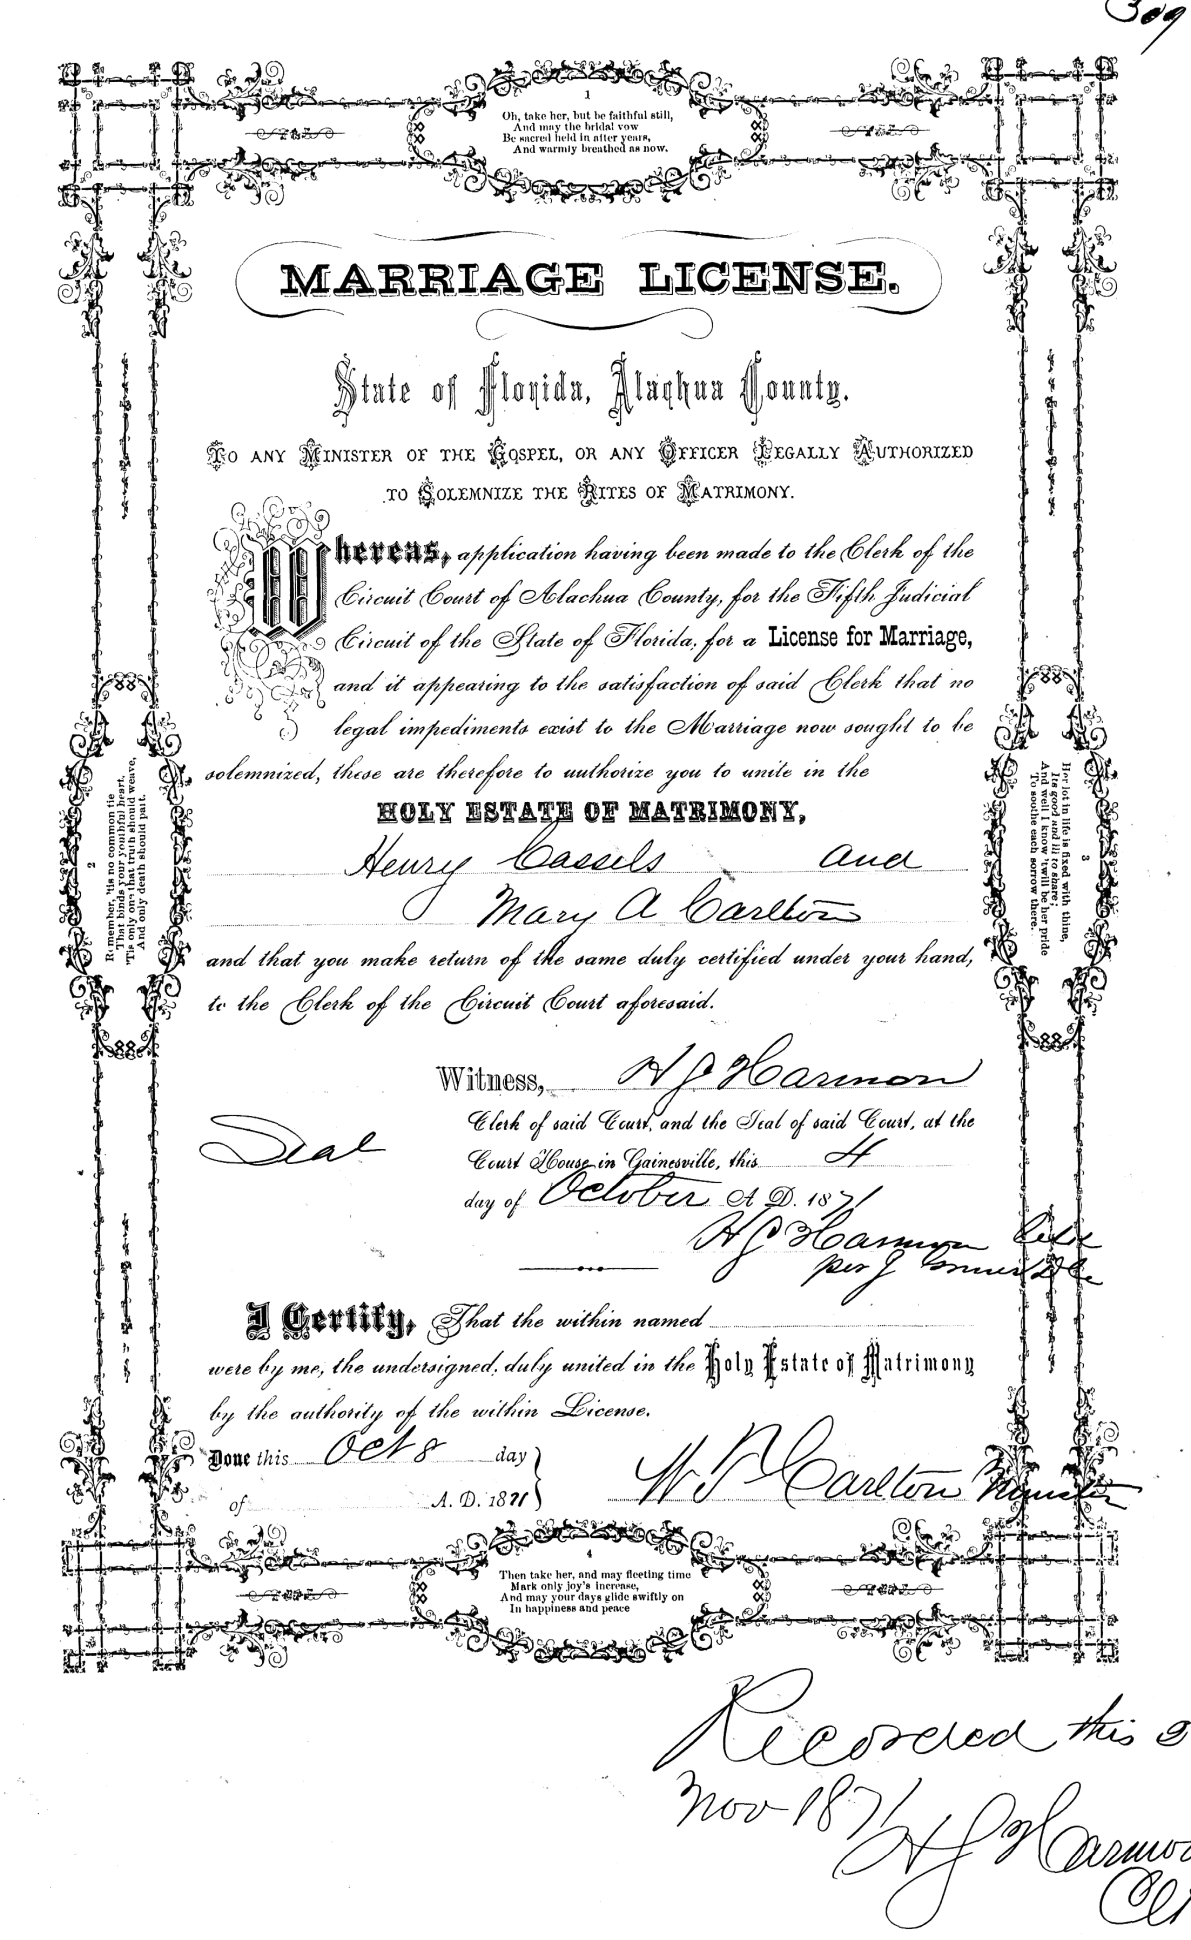 309
1
Oh, take her, but be faithful still,
And may the bridal vow
Be sacred held in after years,
And warmly breathed as now.
MARRIAGE LICENSE.
State of Florida, Alachua County.
TO ANY MINISTER OF THE GOSPEL, OR ANY OFFICER LEGALLY AUTHORIZED
TO SOLEMNIZE THE RITES OF MATRIMONY.
Whereas, application having been made to the Clerk of the
Circuit Court of Alachua County, for the Fifth Judicial
Circuit of the State of Florida, for a License for Marriage,
and it appearing to the satisfaction of said Clerk that no
legal impediments exist to the Marriage now sought to be
solemnized, these are therefore to authorize you to unite in the
HOLY ESTATE OF MATRIMONY,
Henry Cassels and
Mary A Carlton
and that you make return of the same duly certified under your hand,
to the Clerk of the Circuit Court aforesaid.
2
Remember, 'tis no common tie
That binds your youthful heart,
'Tis only one that truth should weave,
And only death should part.
3
Her lot in life is fixed with thine,
Its good and ill to share;
And well I know 'twill be her pride
To soothe each sorrow there.
Witness, H J Harmon
Clerk of said Court, and the Seal of said Court, at the
Seal
Court House in Gainesville, this 4
day of October A D. 1871
H J Harmon Clerk
per J
I Certify, That the within named
were by me, the undersigned, duly united in the Holy Estate of Matrimony
by the authority of the within License.
Done this Oct 8 day
of A. D. 1871
W P Carlton Minister
4
Then take her, and may fleeting time
Mark only joy's increase,
And may your days glide swiftly on
In happiness and peace
Recorded this 2
Nov 1871
H J Harmon
Cl